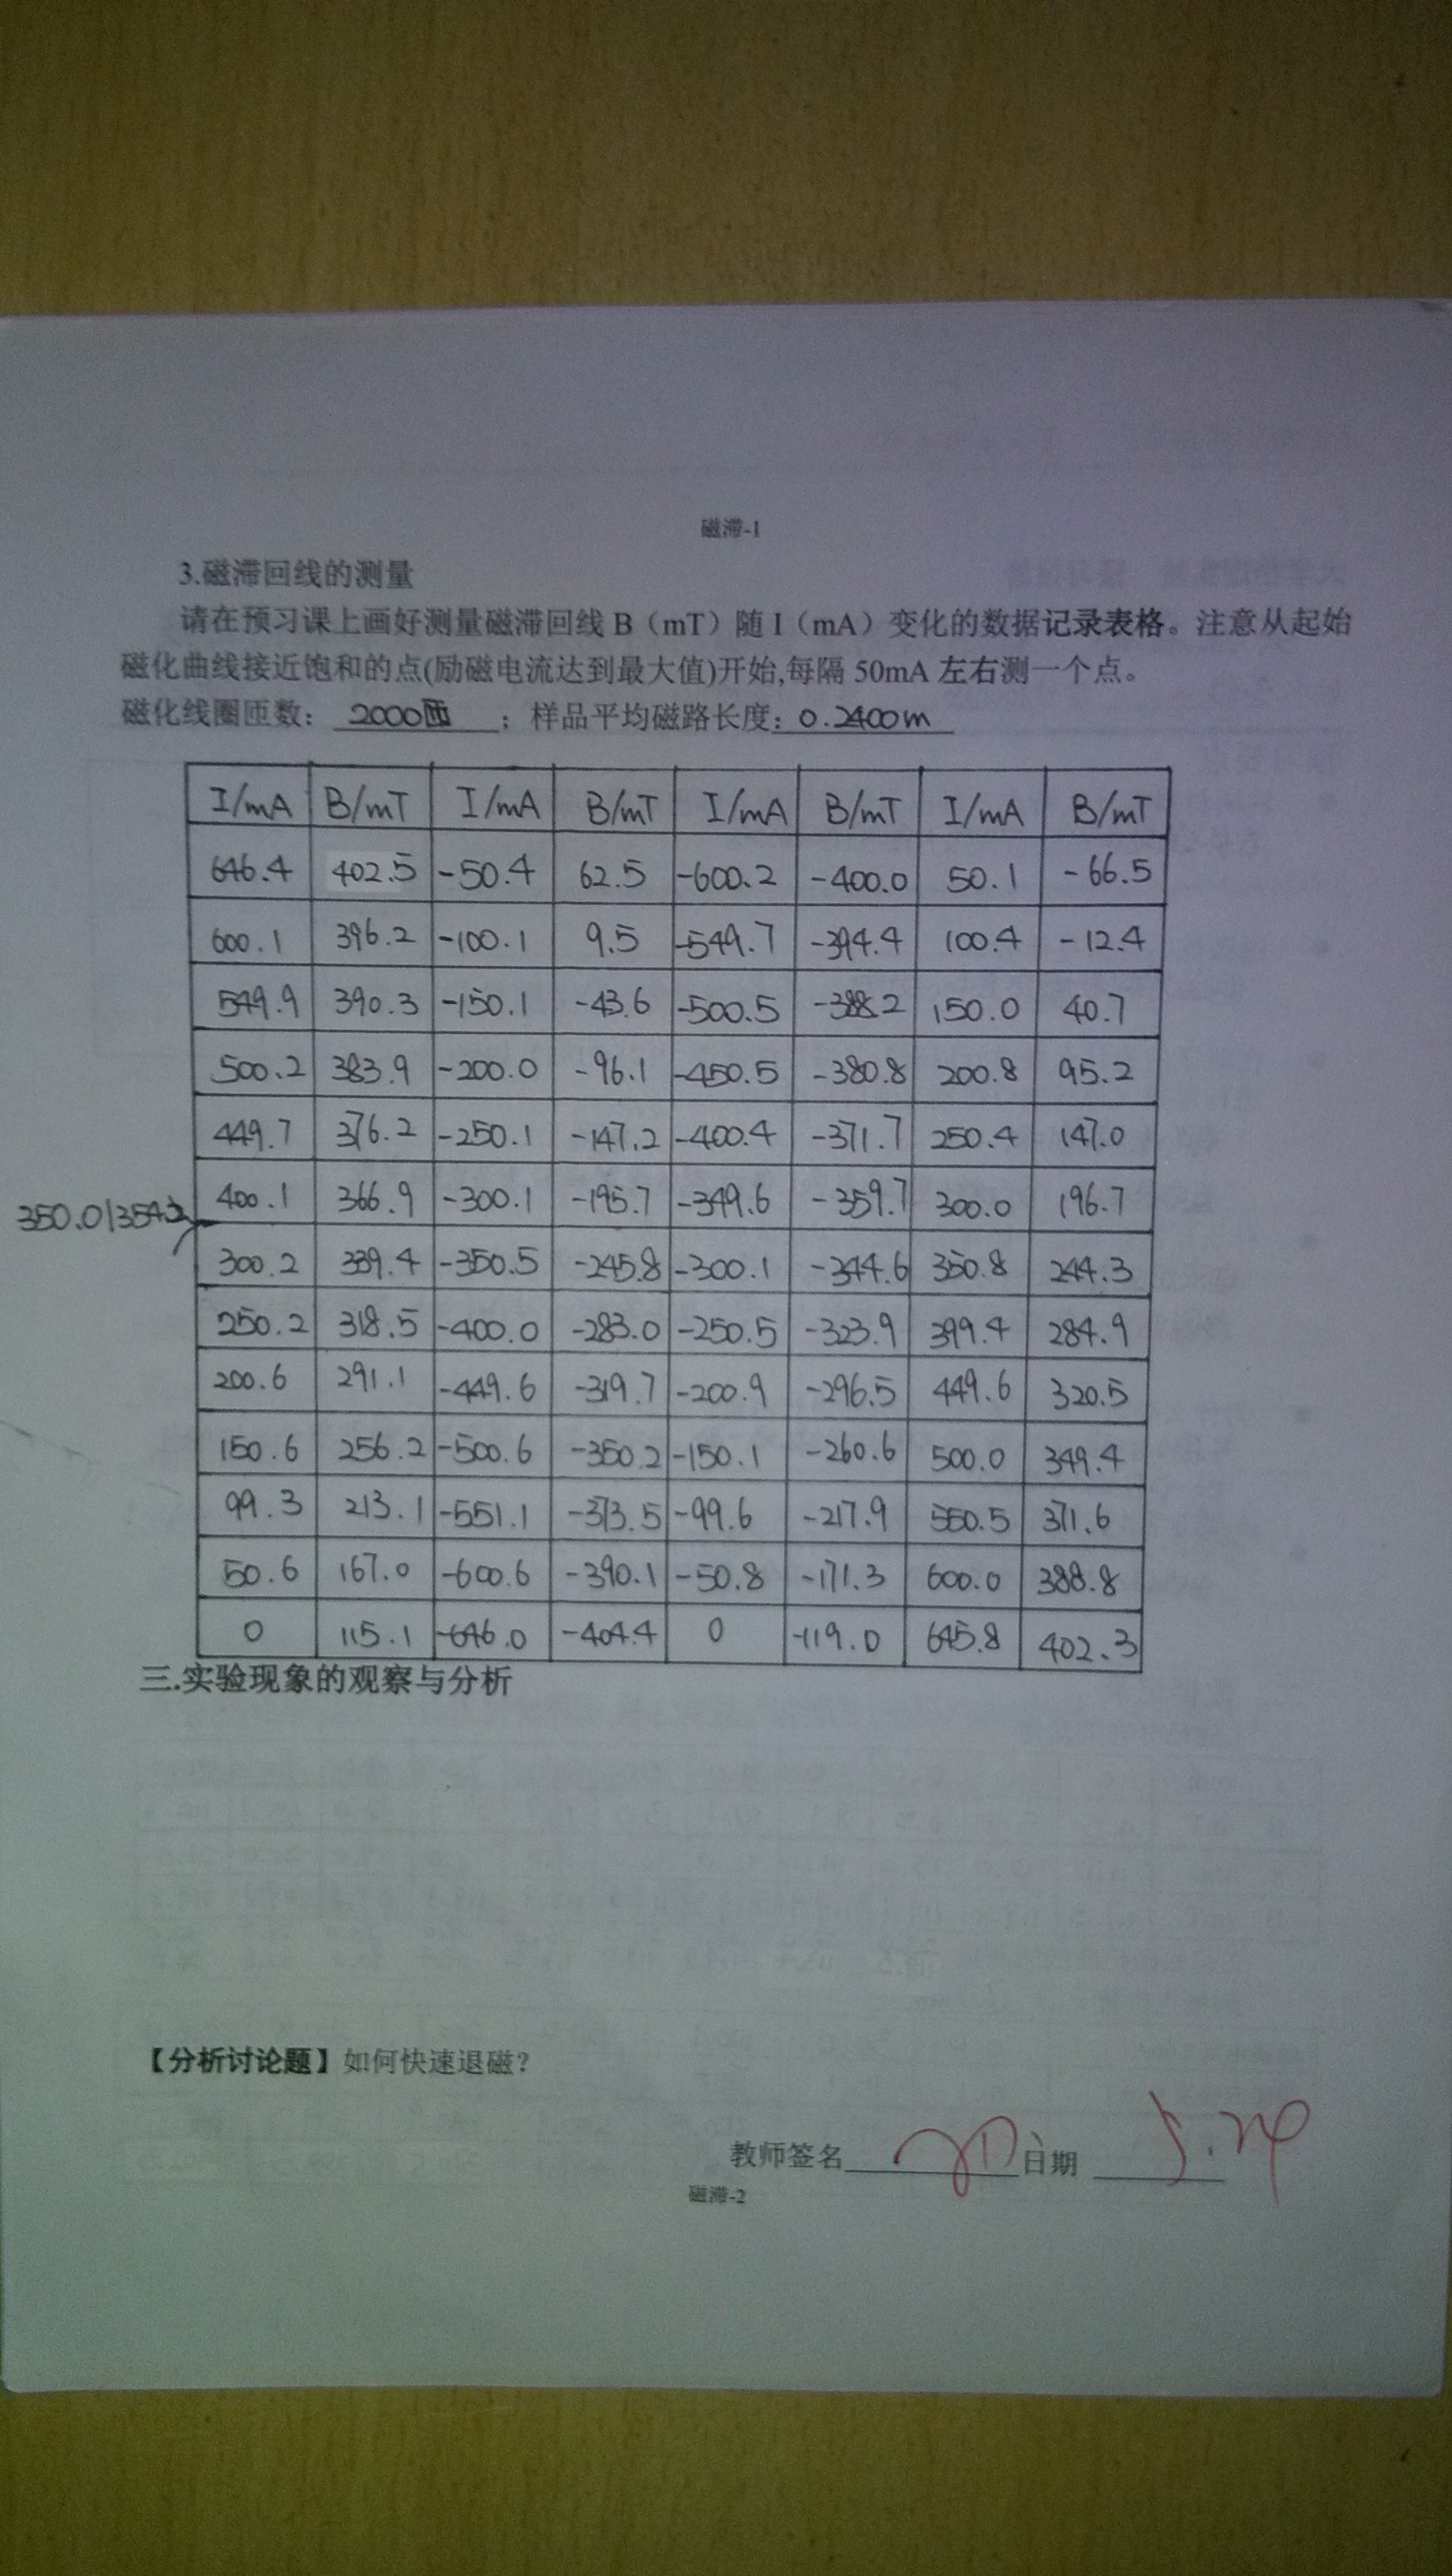 磁滞-1
3.磁滞回线的测量
请在预习课上画好测量磁滞回线 B（mT）随 I（mA）变化的数据记录表格。注意从起始
磁化曲线接近饱和的点(励磁电流达到最大值)开始,每隔 50mA 左右测一个点。
磁化线圈匝数： 2000匝 ；样品平均磁路长度: 0.2400m
I/mA B/mT I/mA B/mT I/mA B/mT I/mA B/mT
646.4 402.5 -50.4 62.5 -600.2 -400.0 50.1 -66.5
600.1 396.2 -100.1 9.5 -549.7 -394.4 100.4 -12.4
549.9 390.3 -150.1 -43.6 -500.5 -388.2 150.0 40.7
500.2 383.9 -200.0 -96.1 -450.5 -380.8 200.8 95.2
449.7 376.2 -250.1 -147.2 -400.4 -371.7 250.4 147.0
400.1 366.9 -300.1 -195.7 -349.6 -359.7 300.0 196.7
350.0
300.2 339.4 -350.5 -245.8 -300.1 -344.6 350.8 244.3
250.2 318.5 -400.0 -283.0 -250.5 -323.9 399.4 284.9
200.6 291.1 -449.6 -319.7 -200.9 -296.5 449.6 320.5
150.6 256.2 -500.6 -350.2 -150.1 -260.6 500.0 349.4
99.3 213.1 -551.1 -373.5 -99.6 -217.9 550.5 371.6
50.6 167.0 -600.6 -390.1 -50.8 -171.3 600.0 388.8
0 115.1 -646.0 -404.4 0 -119.0 645.8 402.3
三.实验现象的观察与分析
【分析讨论题】如何快速退磁?
教师签名 日期 5.24
磁滞-2